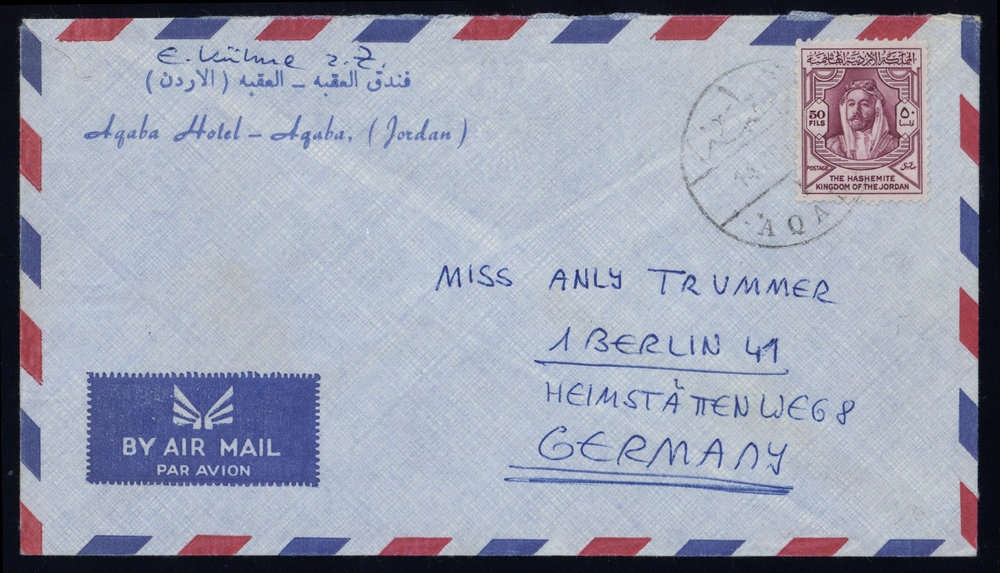 E. Kühne z. Z.
فندق العقبه – العقبه (الاردن)
Aqaba Hotel – Aqaba, (Jordan)
المملكة الأردنية الهاشمية
50 FILS
٥٠
POSTAGE
THE HASHEMITE
KINGDOM OF THE JORDAN
AQA
MISS ANLY TRUMMER
1 BERLIN 41
HEIMSTÄTTENWEG 8
GERMANY
BY AIR MAIL
PAR AVION